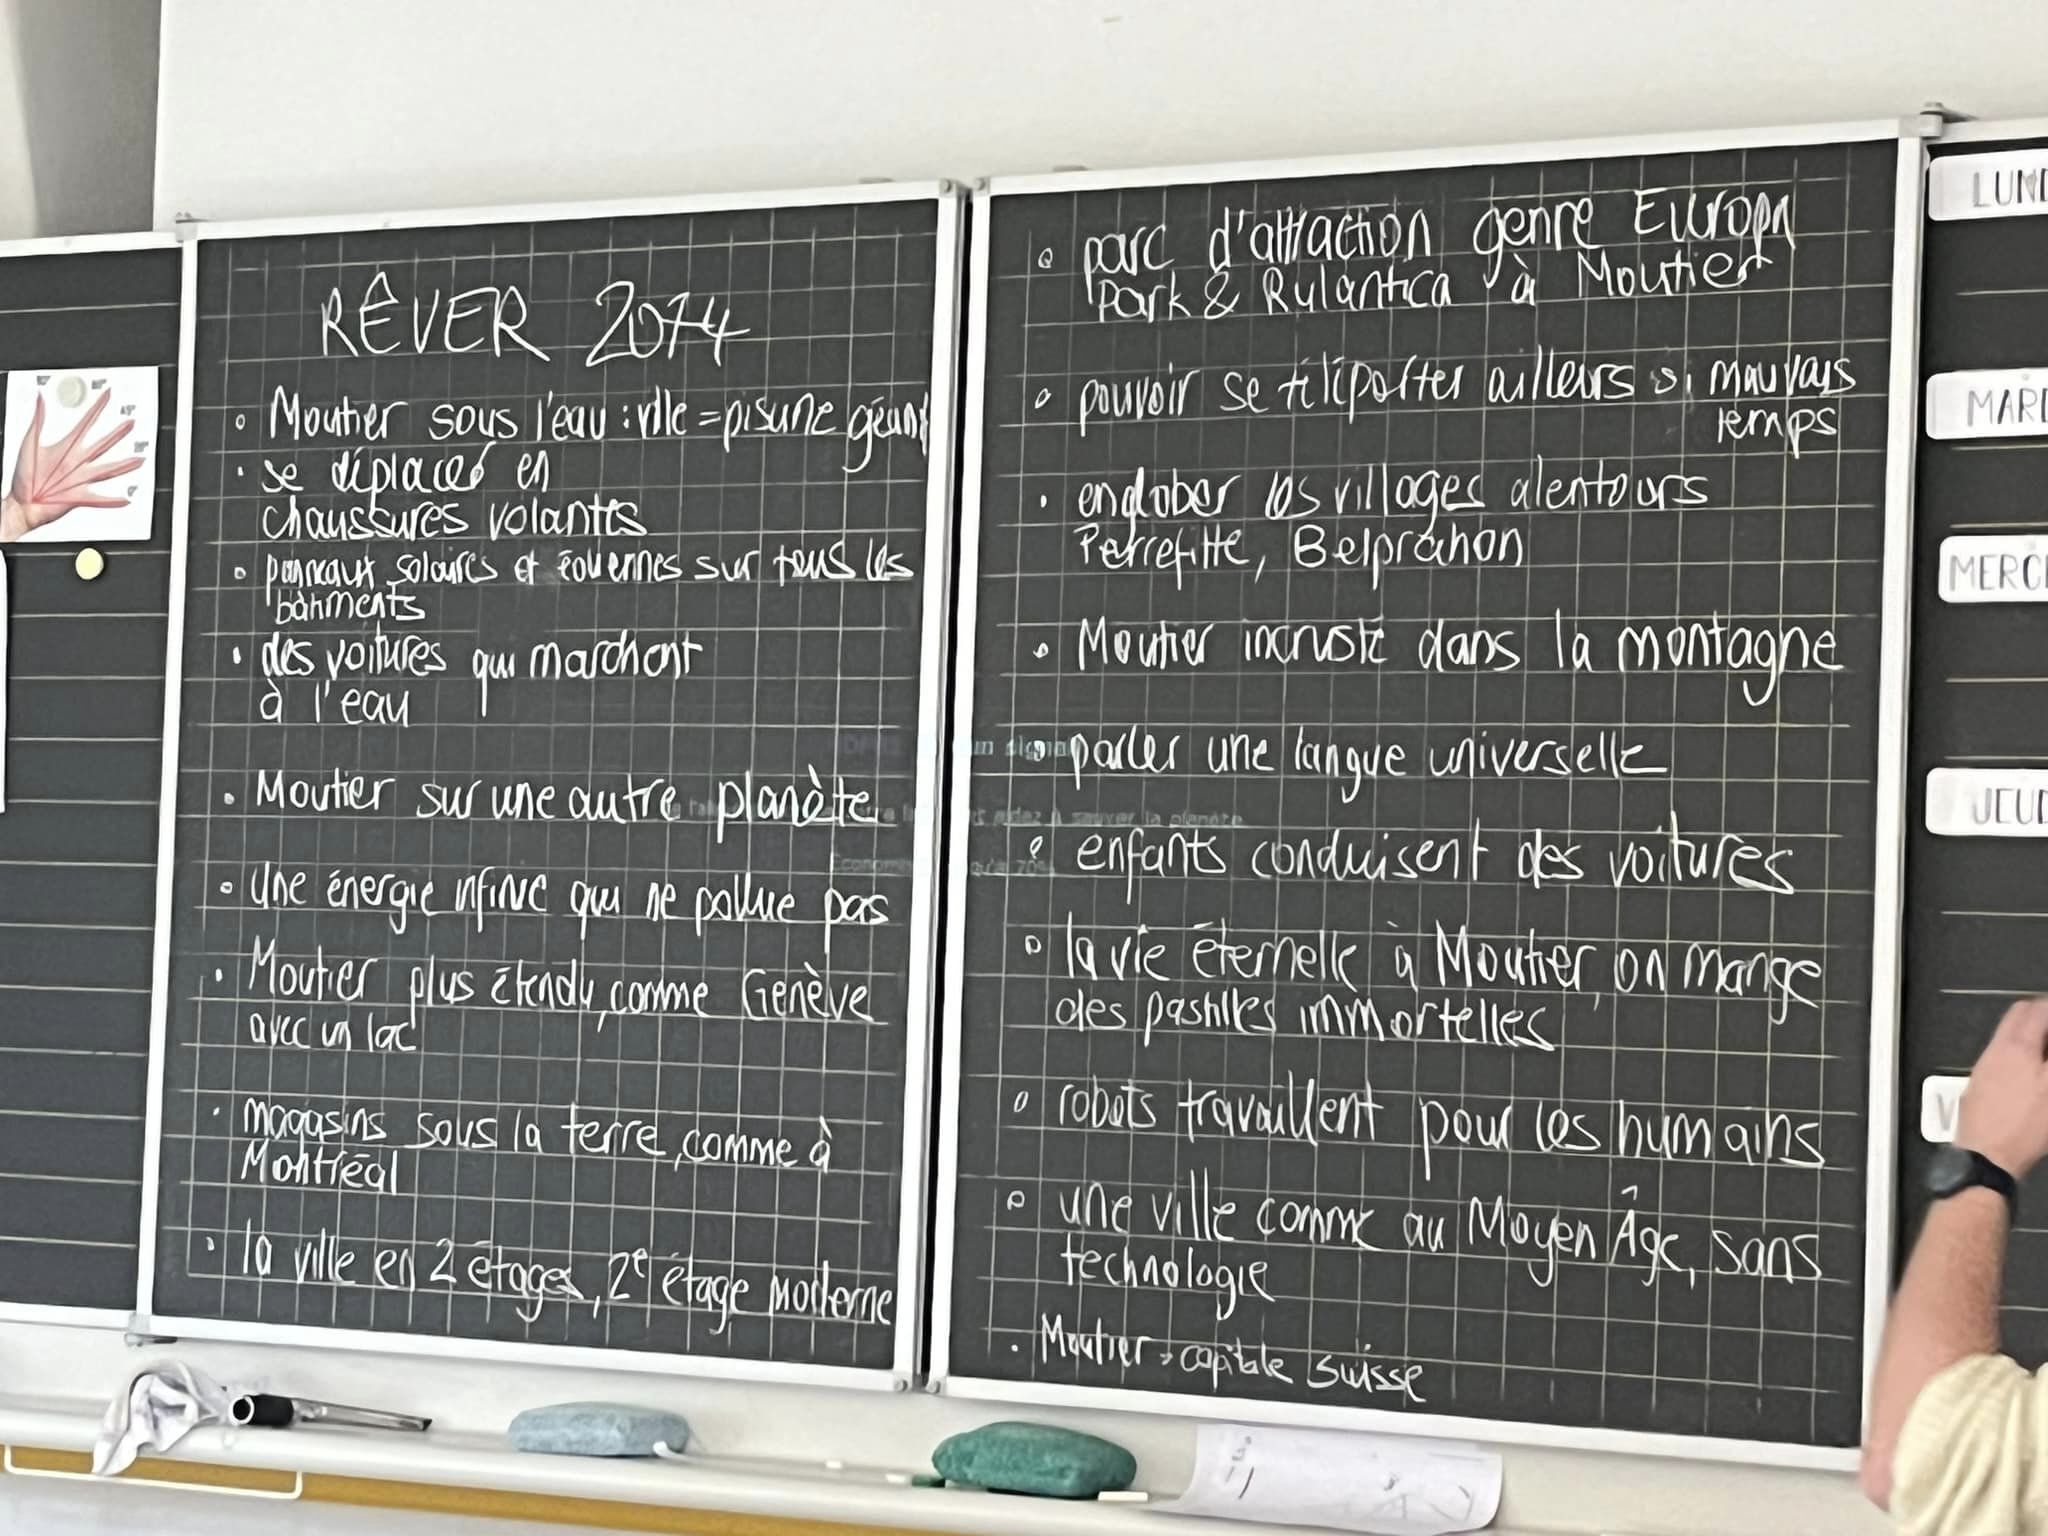 RÊVER 2074
• Moutier sous l'eau : ville = piscine géant
• se déplacer en
chaussures volantes
• panneaux solaires et éoliennes sur tous les
bâtiments
• des voitures qui marchent
à l'eau
• Moutier sur une autre planète
• Une énergie infinie qui ne pollue pas
• Moutier plus étendu, comme Genève
avec un lac
• magasins sous la terre, comme à
Montréal
• la ville en 2 étages, 2e étage moderne
• parc d'attraction genre Europa
Park & Rulantica à Moutier
• pouvoir se téléporter ailleurs si mauvais
temps
• englober les villages alentours
Perrefitte, Belprahon
• Moutier incrusté dans la montagne
• parler une langue universelle
• enfants conduisent des voitures
• la vie éternelle à Moutier, on mange
des pastilles immortelles
• robots travaillent pour les humains
• une ville comme au Moyen Âge, sans
technologie
• Moutier = capitale suisse
LUND
MARD
MERCR
JEUD
V